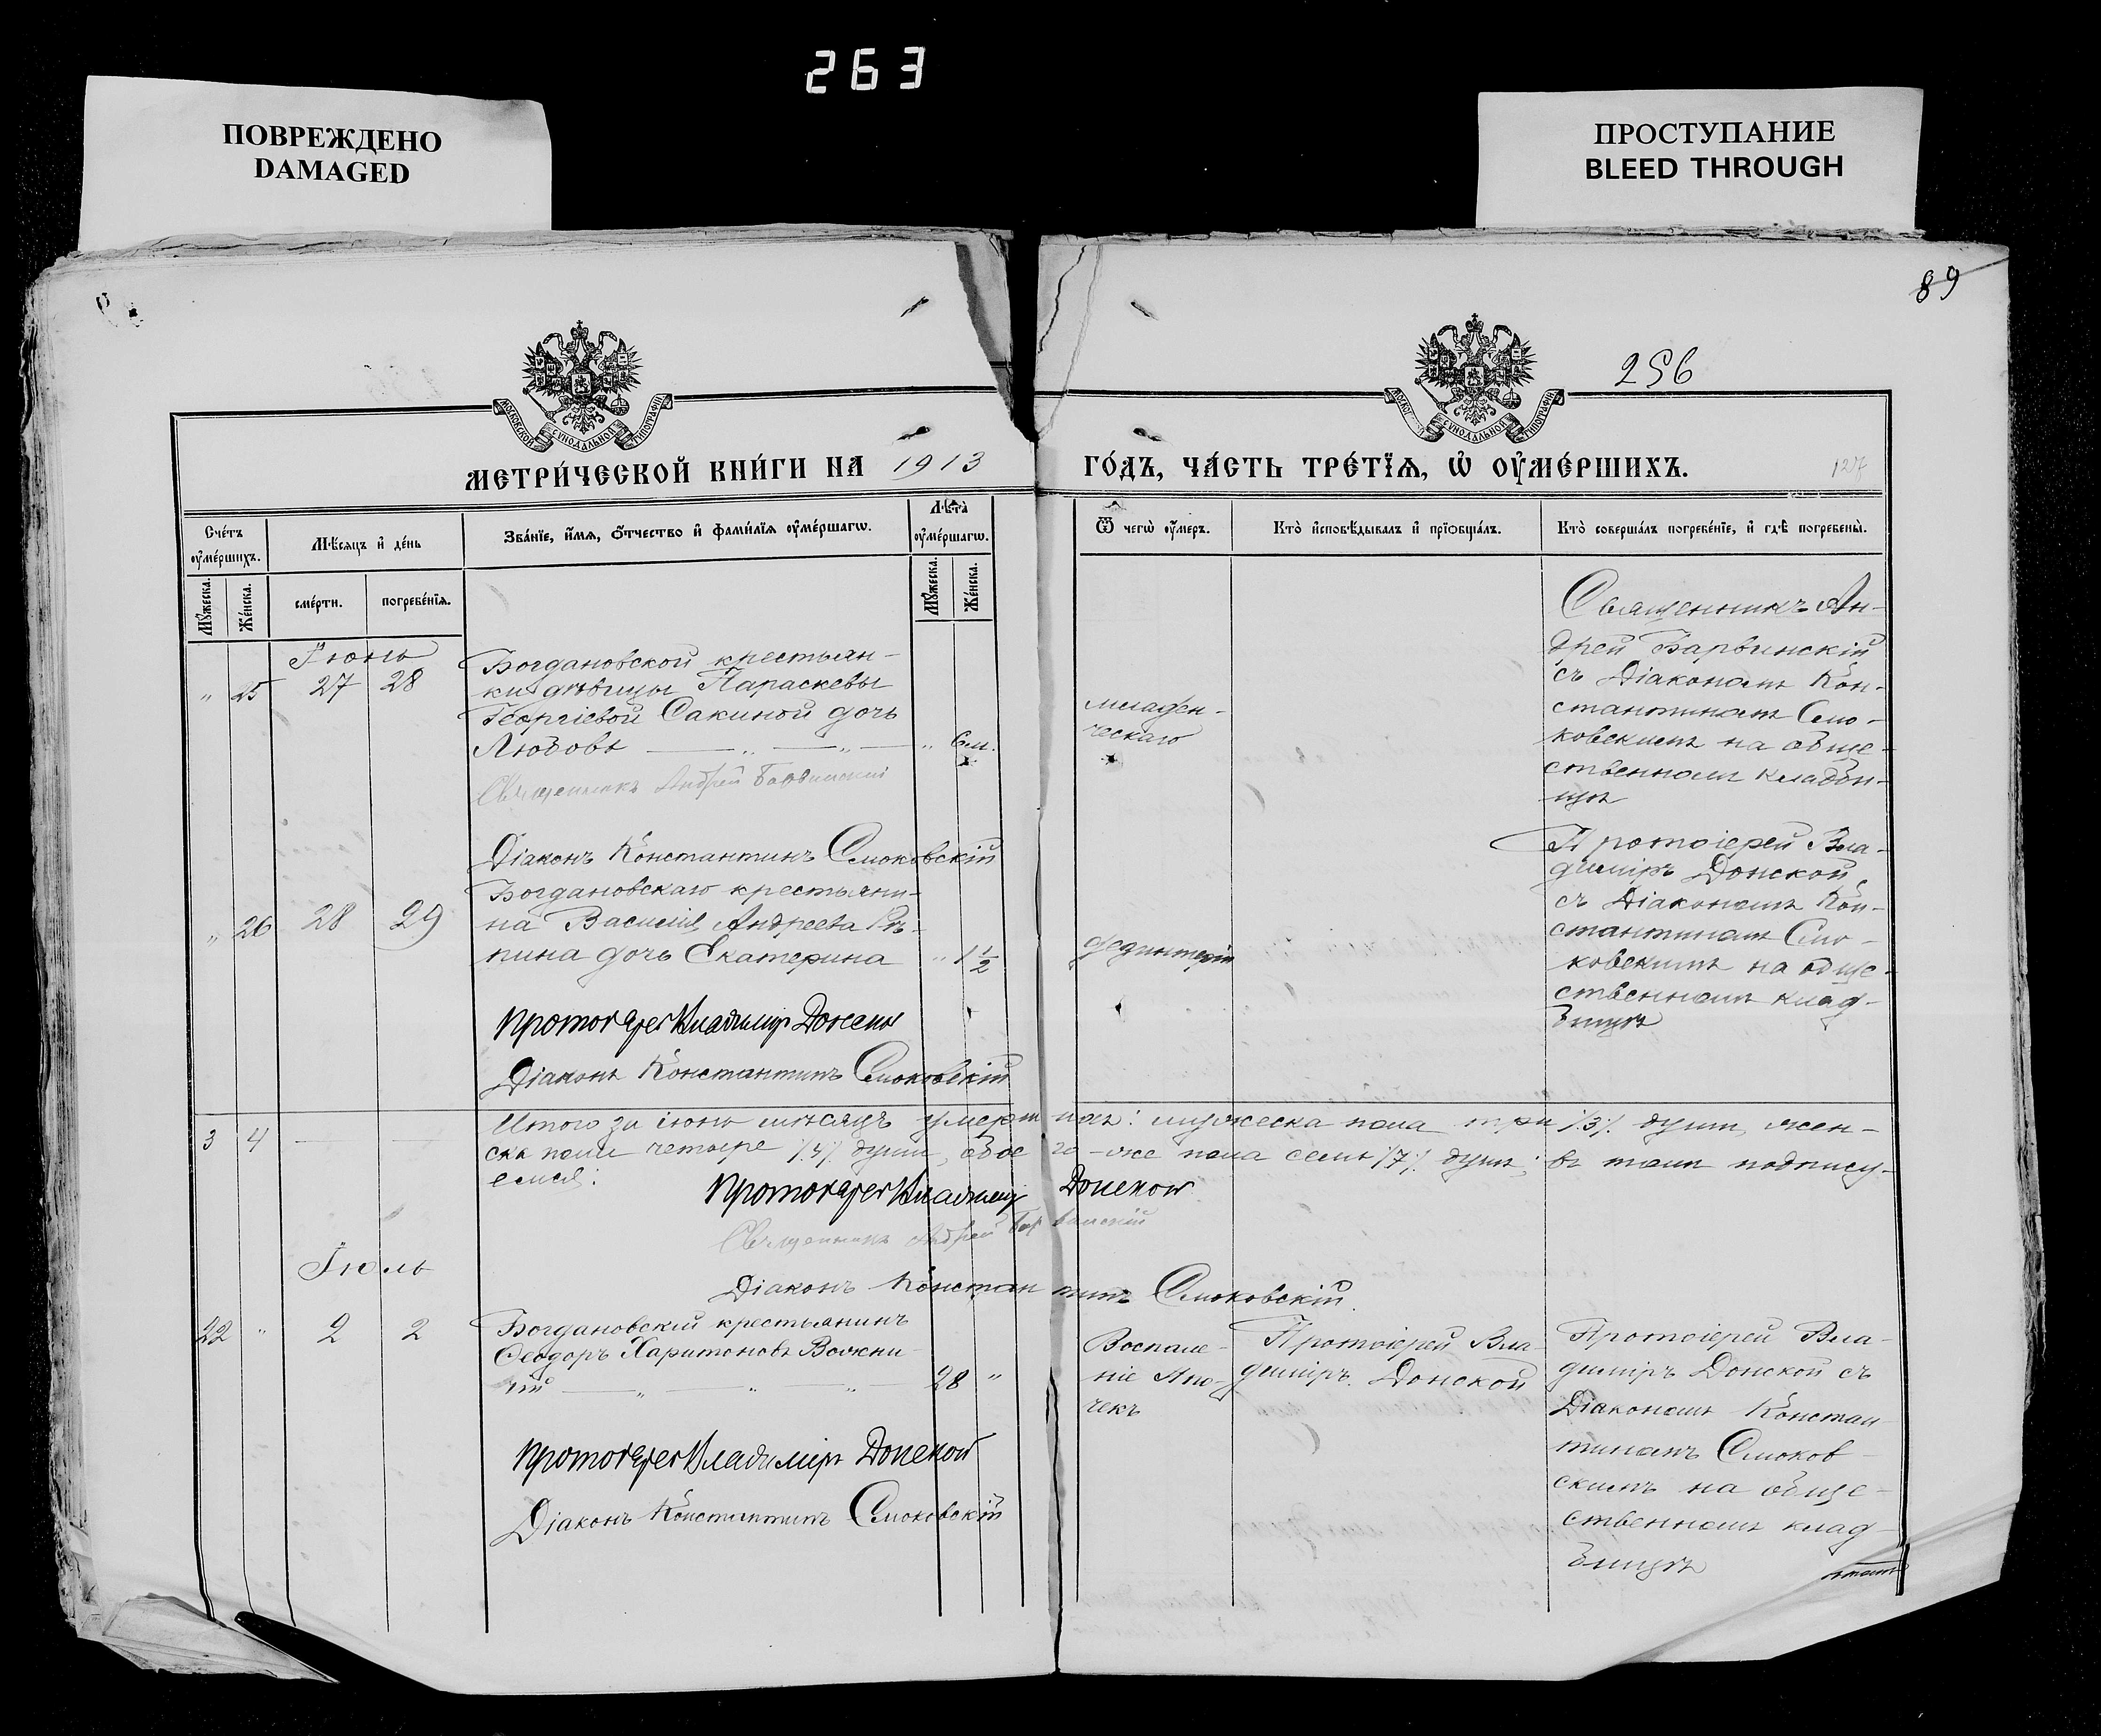 263
ПОВРЕЖДЕНО
DAMAGED
ПРОСТУПАНИЕ
BLEED THROUGH
89
256
МОСКОВСКОЙ СУНОДАЛЬНОЙ ТИПОГРАФИИ
СУНОДАЛЬНОЙ ТИПОГРАФИИ
МЕТРИ́ЧЕСКОЙ КНИ́ГИ НА 1913
ГО́ДЪ, ЧА́СТЬ ТРЕ́ТЇѦ, Ѡ҆ ОУ҆МЕ́РШИХЪ.
127
Сче́тъ
оу҆ме́ршихъ.
Мꙋ́жеска.
Же́нска.
Мѣ́сяцъ и҆ де́нь
сме́рти.
погребе́нїѧ.
Зва́нїе, и҆́мѧ, ѻ҆́тчество и҆ фами́лїѧ оу҆ме́ршагѡ.
Лѣ́та
оу҆ме́ршагѡ.
Мꙋ́жеска.
Же́нска.
Ѿ чегѡ̀ оу҆́меръ.
Кто̀ и҆сповѣ́дывалъ и҆ прїѡбща́лъ.
Кто̀ соверша́лъ погребе́нїе, и҆ гдѣ̀ погребены̀.
Іюнь
" 25 27 28
Богдановской крестьян-
ки дѣвицы Параскевы
Георгіевой Сакиной дочь
Любовь — " — " — " 6 м.
Священникъ Андрей Барвинскій
Діаконъ Константинъ Смоковскій
младен-
ческаго
Священникъ Ан-
дрей Барвинскій
съ Діакономъ Кон-
стантиномъ Смо-
ковскимъ на обще-
ственномъ кладби-
щѣ
" 26 28 29
Богдановскаго крестьяни-
на Василія Андреева Рѣ-
пина дочь Екатерина " 1 1/2
Протоіерей Владиміръ Донской
Діаконъ Константинъ Смоковскій
дезинтерія
Протоіерей Вла-
диміръ Донской
съ Діакономъ Кон-
стантиномъ Смо-
ковскимъ на обще-
ственномъ клад-
бищѣ
3 4 — —
Итого за іюнь мѣсяцъ умершихъ: мужеска пола три /3/ душъ, жен-
ска пола четыре /4/ души, обоего-же пола семь /7/ душъ; въ томъ подпису-
емся:
Протоіерей Владиміръ Донской
Священникъ Андрей Барвинскій
Діаконъ Константинъ Смоковскій
Іюль
22 " 2 2
Богдановскій крестьянинъ
Ѳеодоръ Харитоновъ
— " — " — " — 28 "
Протоіерей Владиміръ Донской
Діаконъ Константинъ Смоковскій
Воспале-
ніе по-
чекъ
Протоіерей Вла-
диміръ Донской
Протоіерей Вла-
диміръ Донской съ
Діакономъ Констан-
тиномъ Смоков-
скимъ на обще-
ственномъ клад-
бищѣ